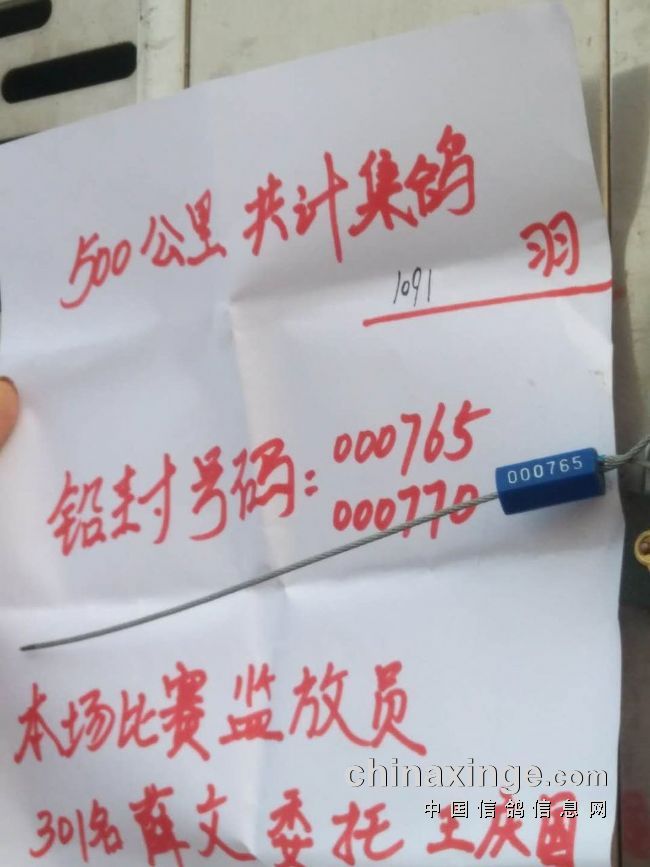 500公里 共计集鸽
1091 羽
铅封号码：000765
000770
000765
本场比赛监放员
301名薛文委托王庆国
chinaxinge.com
中国信鸽信息网